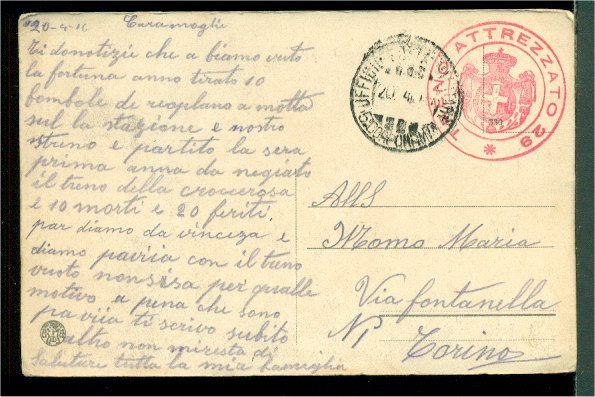 20-4-16 Cara moglie
Ti do notizie che a biamo vuto
la fortuna anno tirato 10
bombole de reoplano a motta
sul la stazione e nostro
treno e partito la sera
prima anna da negiato
il treno della croccerosa
e 10 morti e 20 feriti.
par diamo da vincenza e
diamo paviia con il treno
vuoto non si sa per qualle
motivo a pena che sono
paviia ti scrivo subito
altro non mi resta di
Salutere tutta la mia famiglia
UFFICIO
20. 4.
TRENO ATTREZZATO 29
All S
Momo Maria
Via fontanella
N 1
Torino